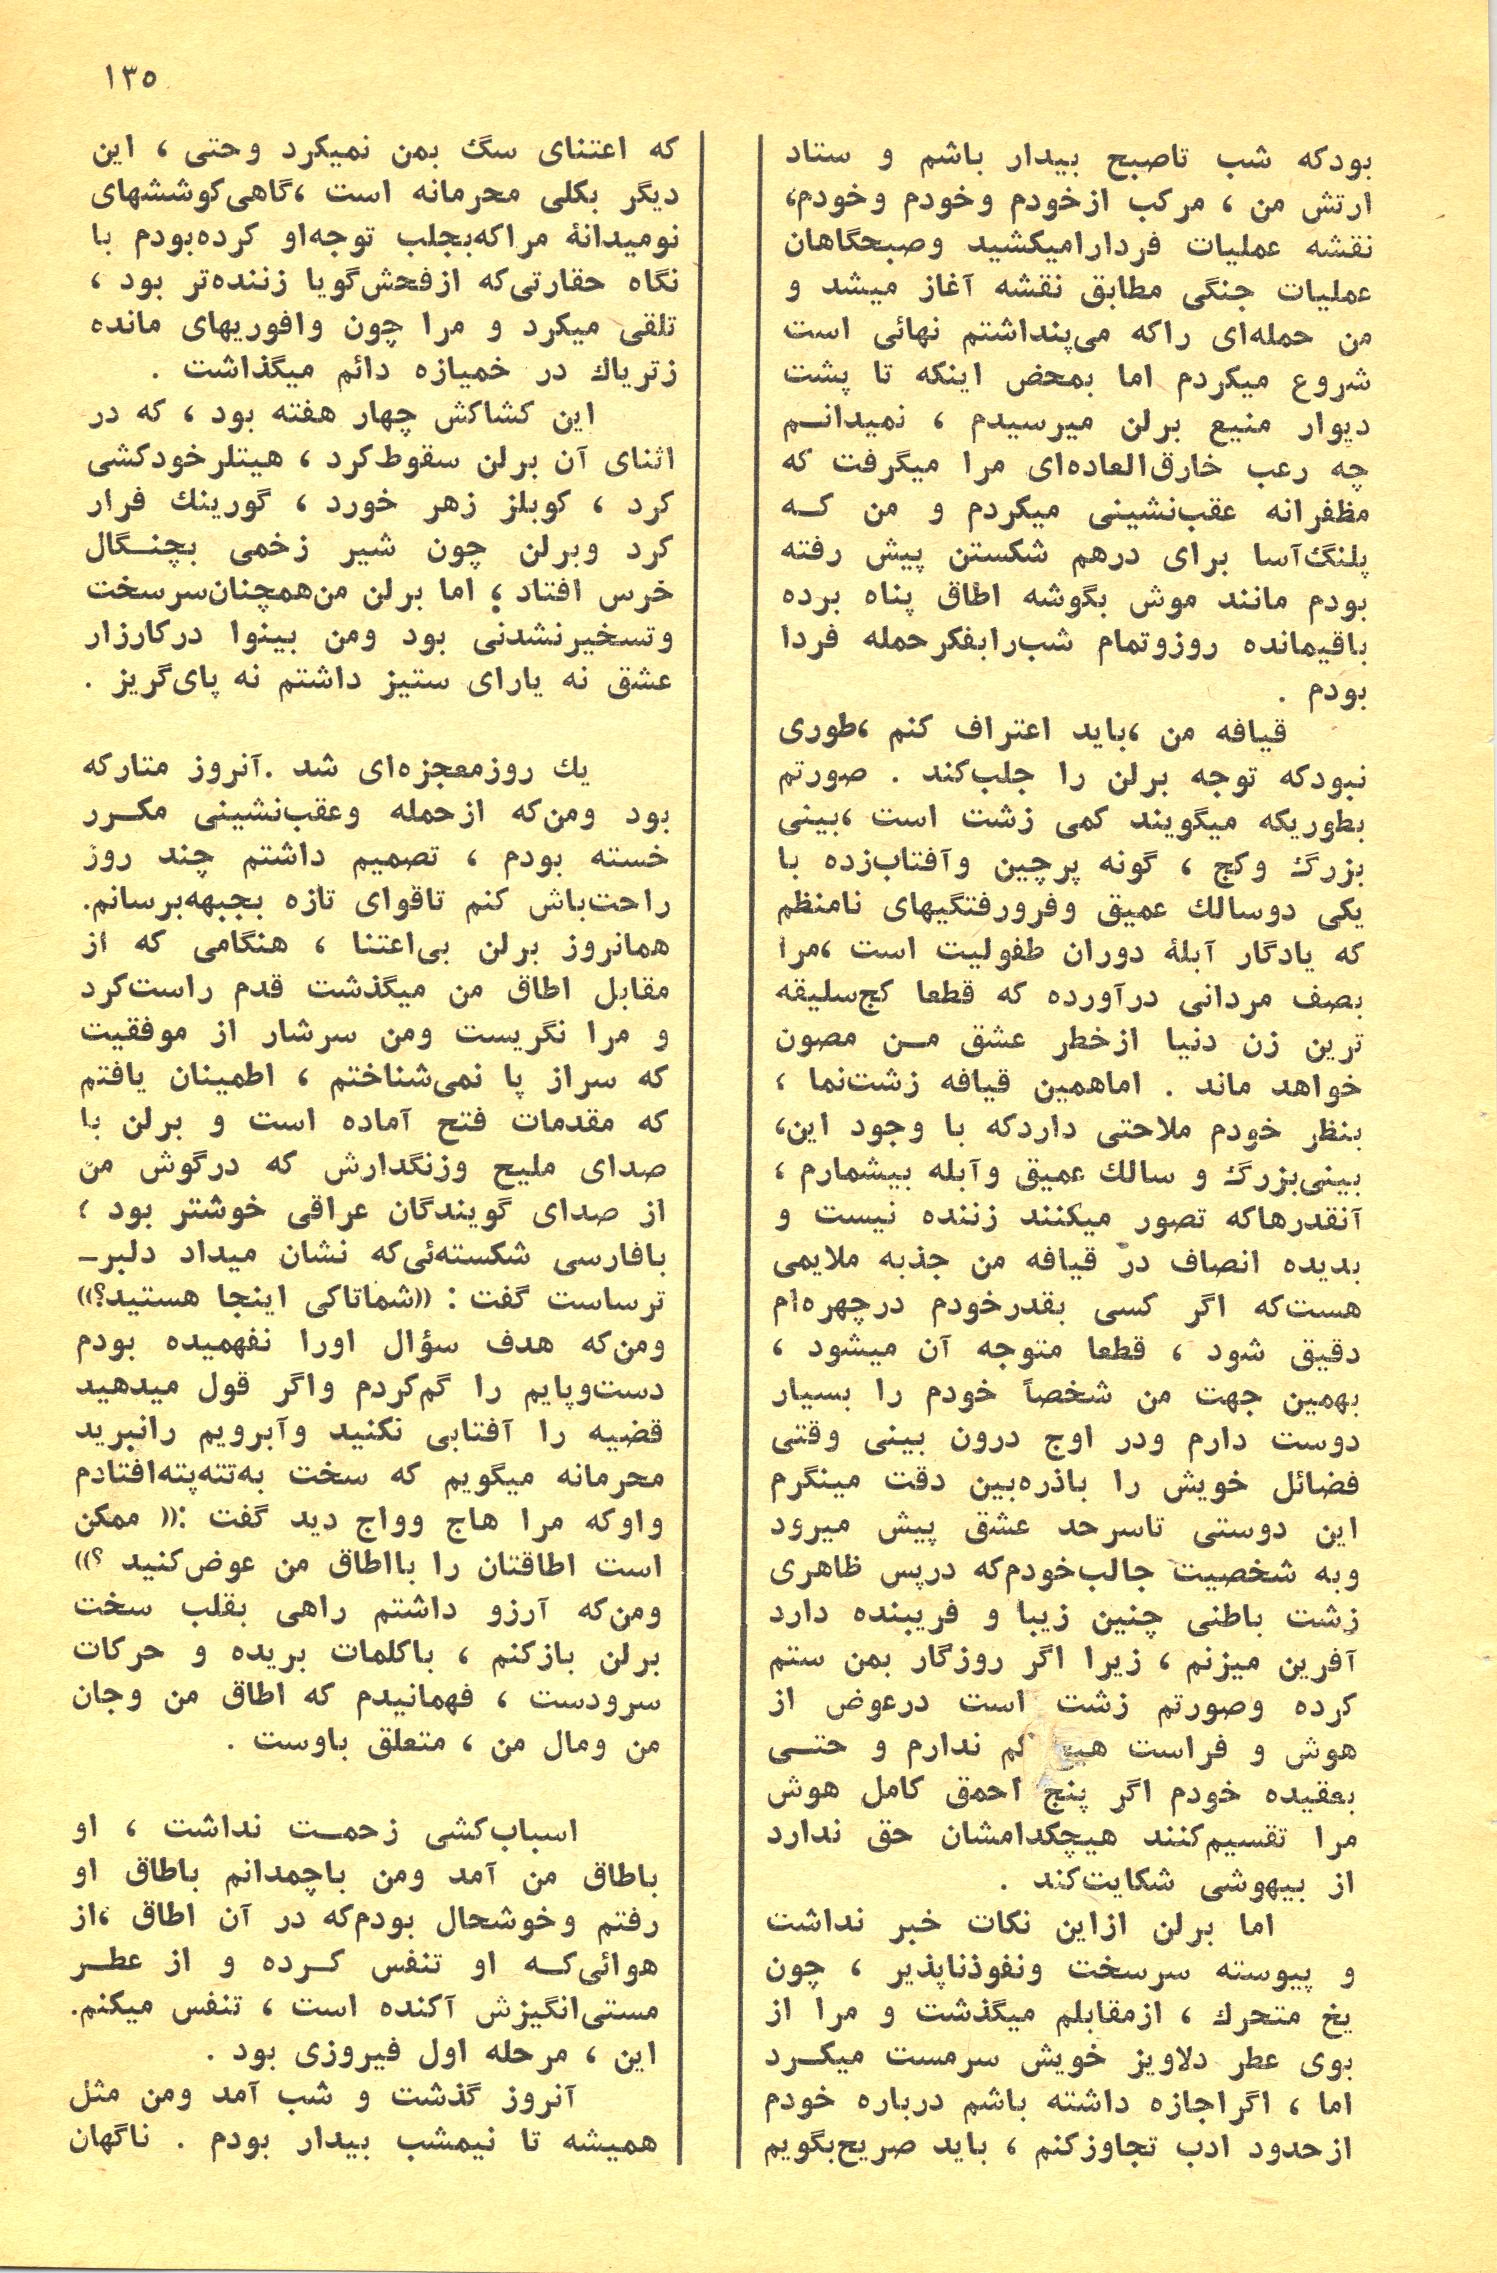 ۱۳۵
بودکه شب تاصبح بیدار باشم و ستاد
ارتش من ، مرکب ازخودم وخودم وخودم،
نقشه عملیات فردارامیکشید وصبحگاهان
عملیات جنگی مطابق نقشه آغاز میشد و
من حمله‌ای راکه می‌پنداشتم نهائی است
شروع میکردم اما بمحض اینکه تا پشت
دیوار منیع برلن میرسیدم ، نمیدانم
چه رعب خارق‌العاده‌ای مرا میگرفت که
مظفرانه عقب‌نشینی میکردم و من که
پلنگ‌آسا برای درهم شکستن پیش رفته
بودم مانند موش بگوشه اطاق پناه برده
باقیمانده روزوتمام شب‌رابفکرحمله فردا
بودم .
قیافه من ،باید اعتراف کنم ،طوری
نبودکه توجه برلن را جلب‌کند . صورتم
بطوریکه میگویند کمی زشت است ،بینی
بزرگ وکج ، گونه پرچین وآفتاب‌زده با
یکی دوسالك عمیق وفرورفتگیهای نامنظم
که یادگار آبلهٔ دوران طفولیت است ،مرا
بصف مردانی درآورده که قطعا کج‌سلیقه
ترین زن دنیا ازخطر عشق من مصون
خواهد ماند . اماهمین قیافه زشت‌نما ،
بنظر خودم ملاحتی داردکه با وجود این،
بینی‌بزرگ و سالك عمیق وآبله بیشمارم ،
آنقدرهاکه تصور میکنند زننده نیست و
بدیده انصاف در قیافه من جذبه ملایمی
هست‌که اگر کسی بقدرخودم درچهره‌ام
دقیق شود ، قطعا متوجه آن میشود ،
بهمین جهت من شخصاً خودم را بسیار
دوست دارم ودر اوج درون بینی وقتی
فضائل خویش را باذره‌بین دقت مینگرم
این دوستی تاسرحد عشق پیش میرود
وبه شخصیت جالب‌خودم‌که درپس ظاهری
زشت باطنی چنین زیبا و فریبنده دارد
آفرین میزنم ، زیرا اگر روزگار بمن ستم
کرده وصورتم زشت است درعوض از
هوش و فراست کم ندارم و حتی
بعقیده خودم اگر پنج احمق کامل هوش
مرا تقسیم‌کنند هیچکدامشان حق ندارد
از بیهوشی شکایت‌کند .
اما برلن ازاین نکات خبر نداشت
و پیوسته سرسخت ونفوذناپذیر ، چون
یخ متحرك ، ازمقابلم میگذشت و مرا از
بوی عطر دلاویز خویش سرمست میکرد
اما ، اگراجازه داشته باشم درباره خودم
ازحدود ادب تجاوزکنم ، باید صریح‌بگویم
که اعتنای سگ بمن نمیکرد وحتی ، این
دیگر بکلی محرمانه است ،گاهی‌کوششهای
نومیدانهٔ مراکه‌بجلب توجه‌او کرده‌بودم با
نگاه حقارتی‌که ازفحش‌گویا زننده‌تر بود ،
تلقی میکرد و مرا چون وافوریهای مانده
زتریاك در خمیازه دائم میگذاشت .
این کشاکش چهار هفته بود ، که در
اثنای آن برلن سقوط‌کرد ، هیتلرخودکشی
کرد ، کوبلز زهر خورد ، گورینك فرار
کرد وبرلن چون شیر زخمی بچنگال
خرس افتاد ؛ اما برلن من‌همچنان‌سرسخت
وتسخیرنشدنی بود ومن بینوا درکارزار
عشق نه یارای ستیز داشتم نه پای‌گریز .
یك روزمعجزه‌ای شد .آنروز متارکه
بود ومن‌که ازحمله وعقب‌نشینی مکرر
خسته بودم ، تصمیم داشتم چند روز
راحت‌باش کنم تاقوای تازه بجبهه‌برسانم.
همانروز برلن بی‌اعتنا ، هنگامی که از
مقابل اطاق من میگذشت قدم راست‌کرد
و مرا نگریست ومن سرشار از موفقیت
که سراز پا نمی‌شناختم ، اطمینان یافتم
که مقدمات فتح آماده است و برلن با
صدای ملیح وزنگدارش که درگوش من
از صدای گویندگان عراقی خوشتر بود ؛
بافارسی شکسته‌ئی‌که نشان میداد دلبر–
ترساست گفت : ((شماتاکی اینجا هستید؟))
ومن‌که هدف سؤال اورا نفهمیده بودم
دست‌وپایم را گم‌کردم واگر قول میدهید
قضیه را آفتابی نکنید وآبرویم رانبرید
محرمانه میگویم که سخت به‌تته‌پته‌افتادم
واوکه مرا هاج وواج دید گفت :(( ممکن
است اطاقتان را بااطاق من عوض‌کنید ؟))
ومن‌که آرزو داشتم راهی بقلب سخت
برلن بازکنم ، باکلمات بریده و حرکات
سرودست ، فهمانیدم که اطاق من وجان
من ومال من ، متعلق باوست .
اسباب‌کشی زحمت نداشت ، او
باطاق من آمد ومن باچمدانم باطاق او
رفتم وخوشحال بودم‌که در آن اطاق ،از
هوائی‌که او تنفس کرده و از عطر
مستی‌انگیزش آکنده است ، تنفس میکنم.
این ، مرحله اول فیروزی بود .
آنروز گذشت و شب آمد ومن مثل
همیشه تا نیمشب بیدار بودم . ناگهان